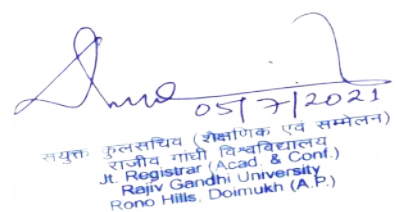 05/7/2021
सयुक्त कुलसचिव (शैक्षणिक एवं सम्मेलन)
राजीव गांधी विश्वविद्यालय
Jt. Registrar (Acad. & Conf.)
Rajiv Gandhi University
Rono Hills, Doimukh (A.P.)